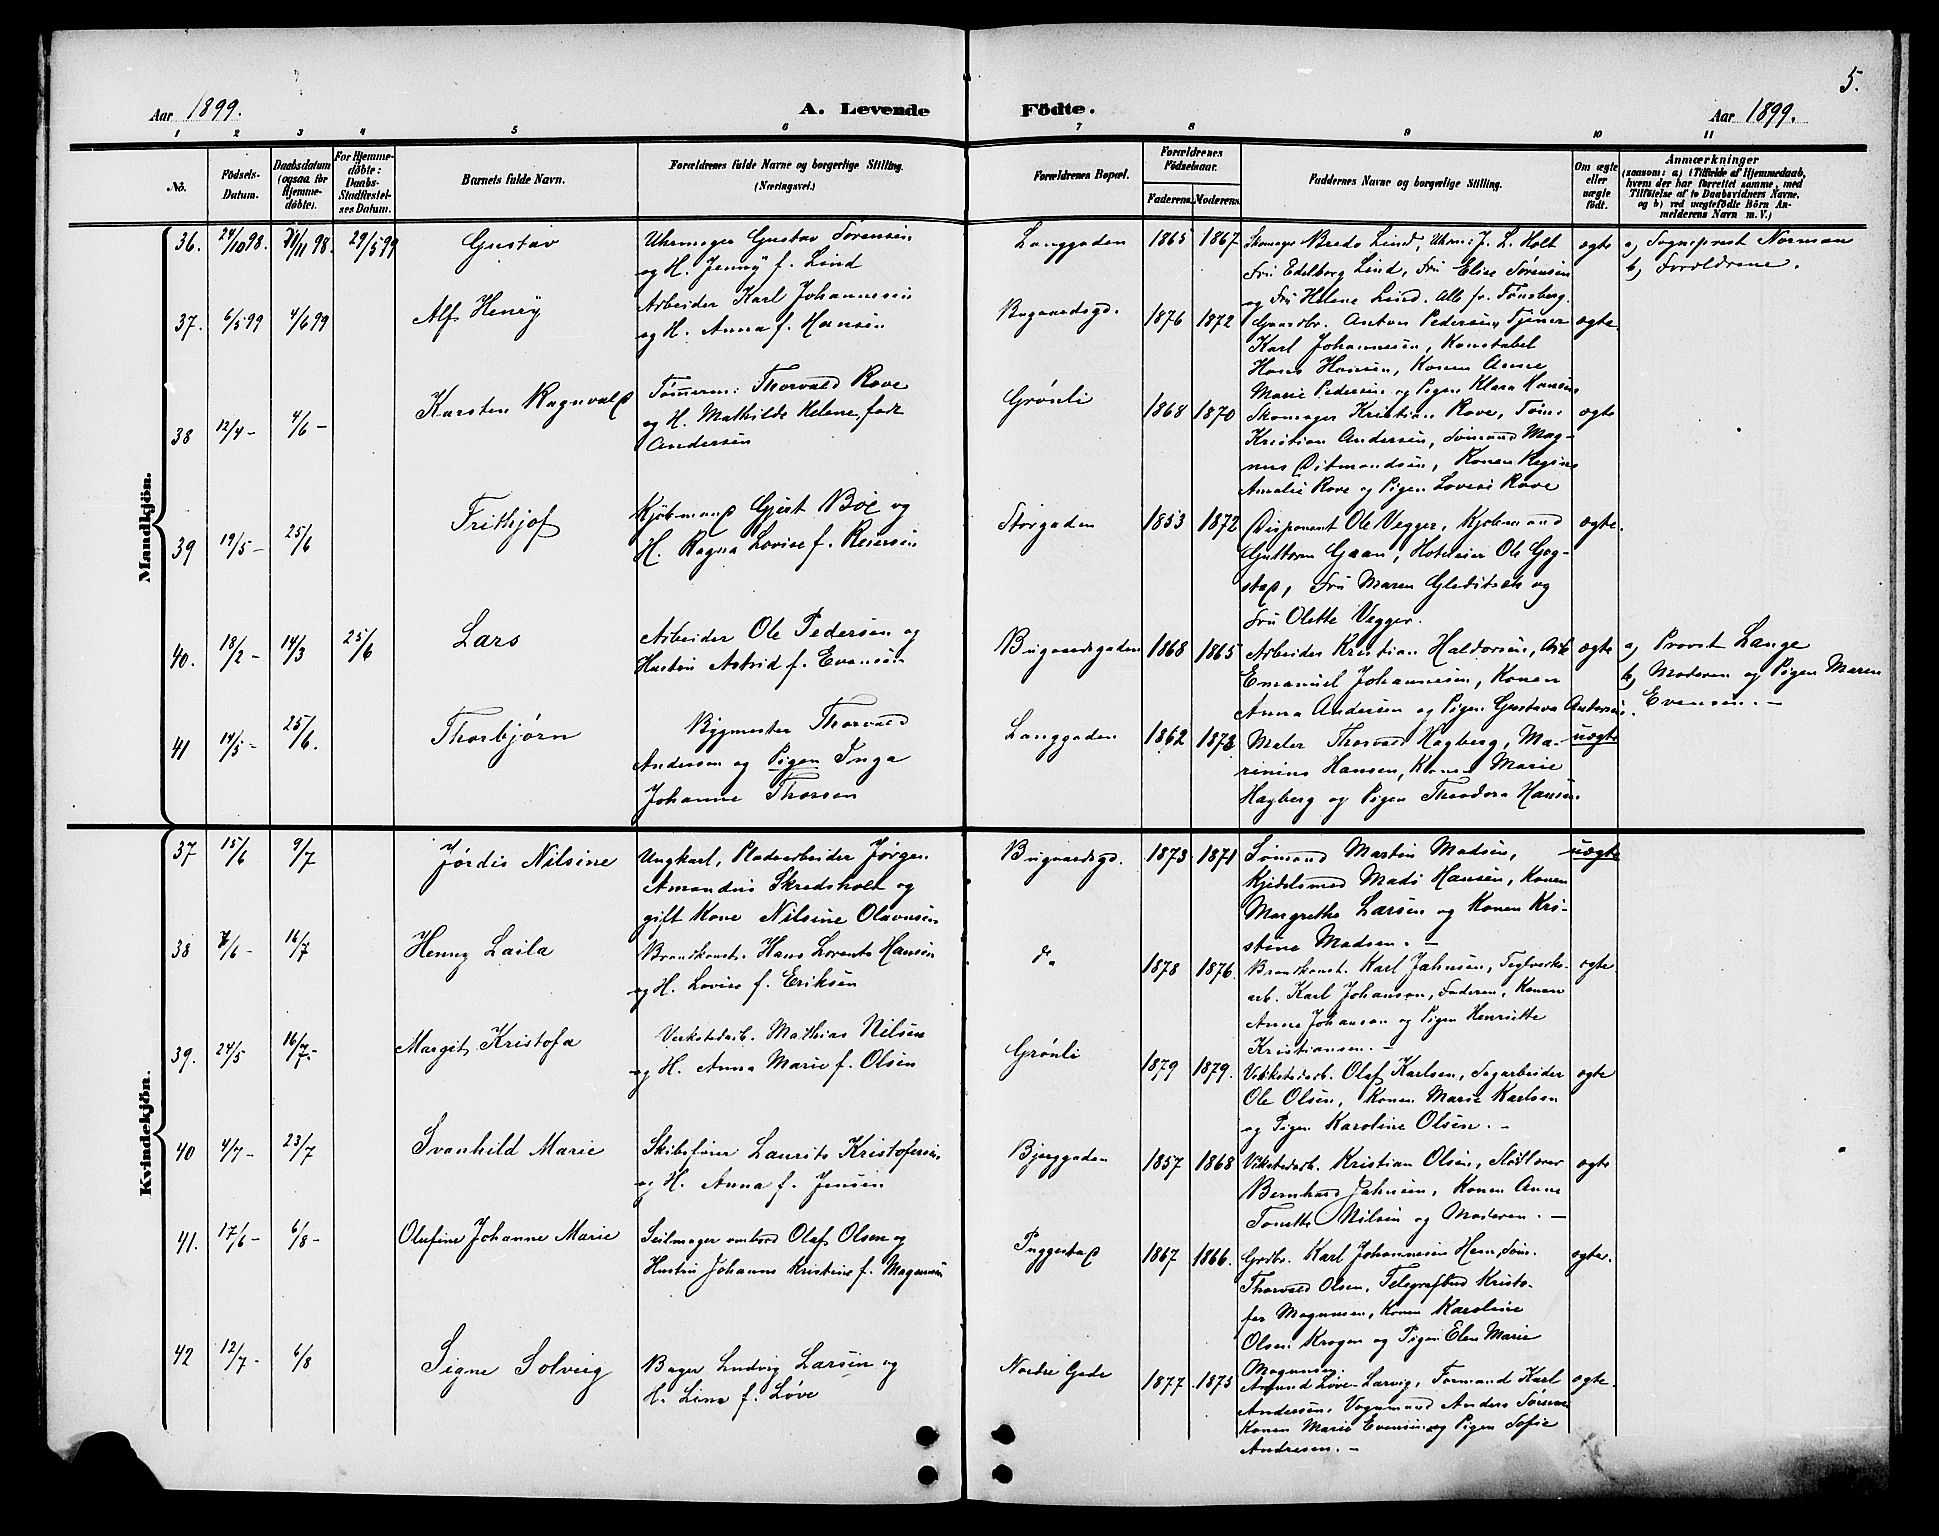 5.
Aar 1899. A. Levende Födte. Aar 1899.
1 2 3 4 5 6 7 8 9 10 11
No. Födsels-Datum. Daabsdatum (ogsaa for Hjemme-döbte). For Hjemme-döbte: Daabs-Stadfæstelses Datum. Barnets fulde Navn. Forældrenes fulde Navne og borgerlige Stilling. (Næringsvei.) Forældrenes Bopæl. Forældrenes Födselsaar. Faderens. Moderens. Faddernes Navne og borgerlige Stilling. Om ægte eller uægte födt. Anmærkninger (saasom: a) i Tilfælde af Hjemmedaab, hvem der har forrettet samme, med Tilföielse af to Daabsvidners Navne, og b) ved uægtefödte Börn Anmelderens Navn m. V.)
Mandkjön.
36. 24/10 98. 98. 29/5 99 Gustav Uhrmager Gustav Sørensen Langgaden 1865 1867 Skomager Bredo Lind, Uhrm: J. L. Holt ægte a) Sogneprest Norman
og H. Jenny f. Lind Fru Edelborg Lind, Fru Elise Sørensen b) Forældrene.
og Fru Helene Lind. Alle fr. Tønsberg.
37. 6/5 99 4/6 99 Alf Henry Arbeider Karl Johannessen Bugaardsgd. 1876 1872 Gaardbr. Anton Pedersen, Tjener ægte
og H. Anna f. Hansen Karl Johannesen, Konstabel
Hans Hansen, Konen Anne
Marie Pedersen og Pigen Klara Hansen
38 12/4 - 4/6 - Karsten Ragnvald Tømmerm: Thorvald Rove Grønli 1868 1870 Skomager Kristian Rove, Tøm: ægte
og H. Mathilde Helene, født Kristian Andersen, Sømand Mag-
Andersen nus Ditmandsen, Konen Regine
Amalie Rove og Pigen Lovise Rove
39 19/5 - 25/6 Frithjof Kjøbmand Gjert Bøe og Storgaden 1853 1872 Disponent Ole Vegger, Kjøbmand ægte.
H. Ragna Lovise f. Reiersen Guttorm Gaan, Hoteleier Ole Gog-
stad, Fru Maren Gleditsch og
Fru Olette Vegger.
40. 18/2 - 14/3 25/6 Lars Arbeider Ole Pedersen og Bugaardsgaden 1868 1865 Arbeider Kristian Haldorsen, Arb. ægte a) Provst Lange
Hustru Astrid f. Evensen Emanuel Johannesen, Konen b) Moderen og Pigen Maren
Anna Andersen og Pigen Gustava Andersen. Evensen. -
41 14/5 - 25/6. Thorbjørn Bygmester Thorvald Langgaden 1862 1873 Maler Thorvald Hagberg, Ma- uægte
Andersen og Pigen Inga rinius Hansen, Konen Marie
Johanne Thorsen Hagberg og Pigen Theodora Hansen.
Kvindekjön.
37 15/6 9/7 Jørdis Nilsine Ungkarl, Pladsarbeider Jørgen Bugaardsgd. 1873 1871 Sømand Martin Madsen, uægte
Amandus Skredsholt og Kjedelsmed Mads Hansen, Konen
gift Kone Nilsine Olavesen Margrethe Larsen og Konen Kri-
stine Madsen. -
38 /6 - 16/7 Henny Laila Brandkonst. Hans Lorents Hansen do 1878 1876. Brandkonst. Karl Jahnsen, Teglverks- ægte
og H. Lovise f. Eriksen arb. Karl Johanson, Faderen, Konen
Anne Johanson og Pigen Henriette
Kristiansen. -
39. 24/5 16/7 - Margit Kristofa Verkstedarb. Mathias Nilsen Grønli 1879 1879. Verkstedarb. Olaf Karlsen, Sagarbeider ægte
og H. Anna Marie f. Olsen Ole Olsen, Konen Marie Karlsen
og Pigen Karoline Olsen. -
40 4/7 - 23/7 Svanhild Marie Skibsfører Laurits Kristofersen Bjerggaden 1857 1868 Vrkstedarb. Kristian Olsen, ægte
og H. Anna f. Jensen Bernhard Jahnsen, Konen Anne
Tonette Nilsen og Moderen. -
41. 17/6 - 6/8 - Olufine Johanne Marie Seilmager ombord Olaf Olsen og Puggestad 1867 1866. Grdbr. Karl Johannesen Hem, Søm. ægte.
Hustru Johanne Kristine f. Magnusen Thorvald Olsen, Telegrafbud Kristo-
fer Magnusen, Konen Karoline
Olsen Krogen og Pigen Elen Marie
Magnusen.
42 12/7 - 6/8 Signe Solveig Bager Ludvig Larsen og Nordre Gade 1877 1875 Amund Løve - Larvig, Formand Karl ægte.
H. Lina f. Løve Andersen, Vognmand Anders Sørense
Konen Marie Evensen og Pigen Sofie
Andresen. -